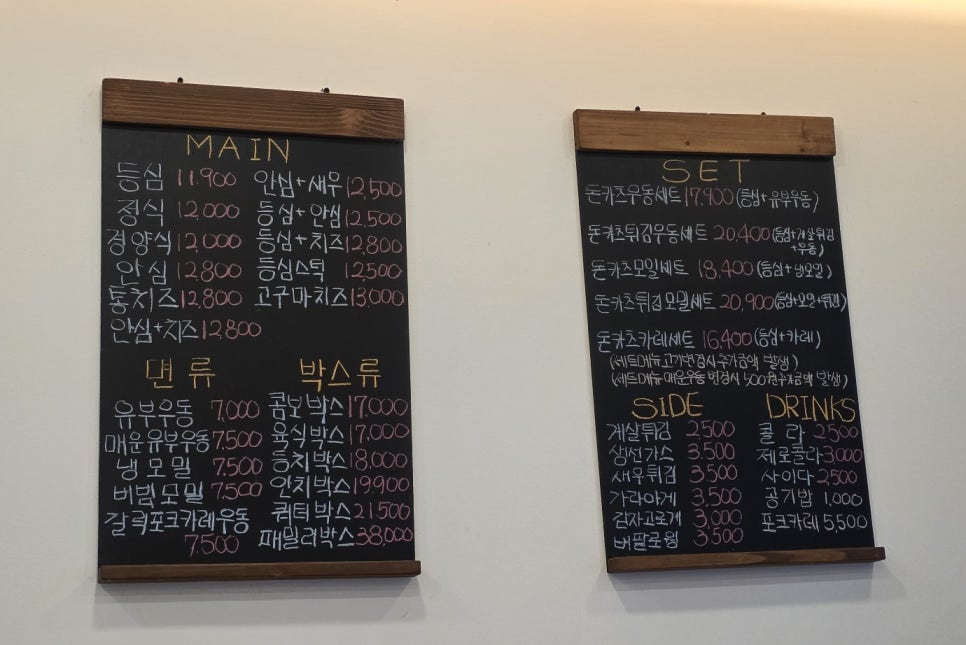 MAIN
등심 11,900 안심+새우 12,500
정식 12,000 등심+안심 12,500
경양식 12,000 등심+치즈 12,800
안심 12,800 등심스틱 12,500
통치즈 12,800 고구마치즈 13,000
안심+치즈 12,800
면류
유부우동 7,000
매운유부우동 7,500
냉모밀 7,500
버빔모밀 7,500
갈릭포크카레우동
7,500
박스류
콤보박스 17,000
육식박스 17,000
등치박스 18,000
안치박스 19,900
쿼터박스 21,500
패밀리박스 38,000
SET
돈카츠우동세트 17,900 (등심+유부우동)
돈카츠튀김우동세트 20,400 (등심+게살튀김
+우동)
돈카츠모밀세트 18,400 (등심+냉모밀)
돈카츠튀김모밀세트 20,900 (등심+모밀+튀김)
돈카츠카레세트 16,400 (등심+카레)
(세트메뉴 고기변경시 추가금액 발생)
(세트메뉴 매운우동 변경시 500원 추가금액 발생)
SIDE
게살튀김 2,500
생선가스 3,500
새우튀김 3,500
가라아게 3,500
감자고로케 3,000
버팔로윙 3,500
DRINKS
콜라 2,500
제로콜라 3,000
사이다 2,500
공기밥 1,000
포크카레 5,500